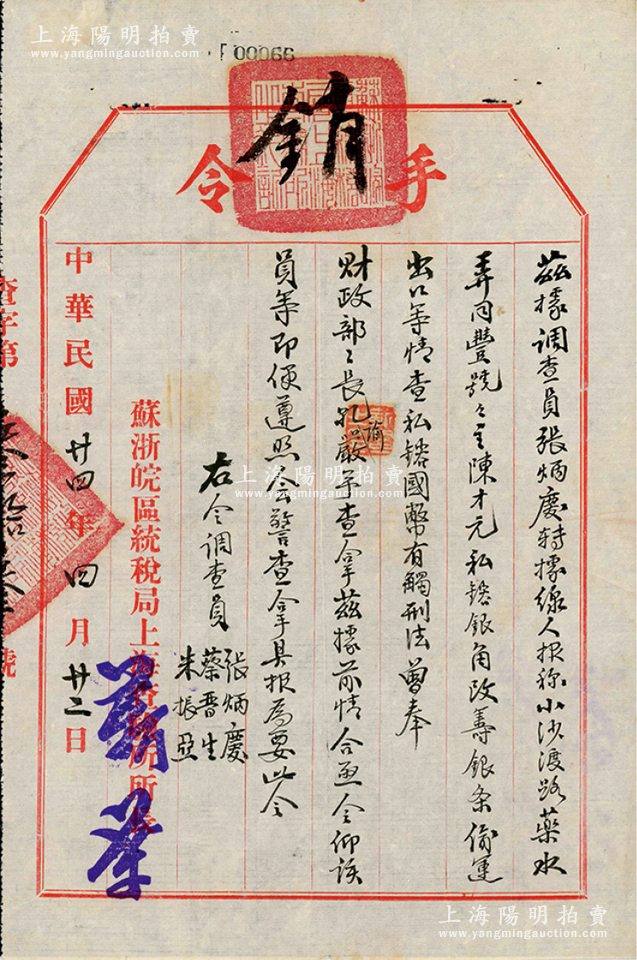 上海陽明拍賣
www.yangmingauction.com
00066
手令
銷
茲據調查員張炳慶轉據線人报称小沙渡路藥水
弄同豐號々主陳才元私鎔銀角改籌銀条偷運
出口等情查私鎔國幣有觸刑法曾奉
財政部々長孔諭嚴予查拿茲據前情合亟令仰该
員等即便遵照会警查拿具报為要此令
右令調查員
張炳慶
蔡晋生
朱振亞
蘇浙皖區統稅局上海查驗所所長
中華民國廿四年四月廿二日
查字第
號
上海陽明拍賣
www.yangmingauction.com
上海陽明拍賣
www.yangmingauction.com